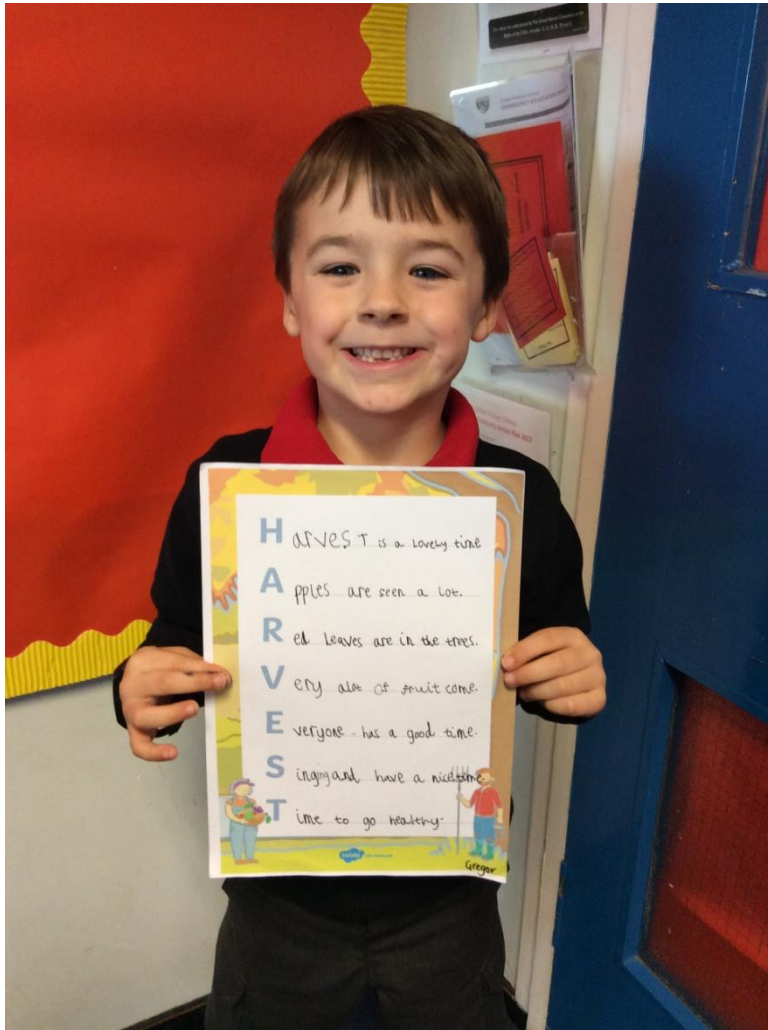 Rights of the Child
HARVEST is a Lovely time
Apples are seen a lot.
Red Leaves are in the trees.
Very alot of fruit come.
Everyone has a good time.
Singing and have a nice time
Time to go healthy.
twinkl
Gregor